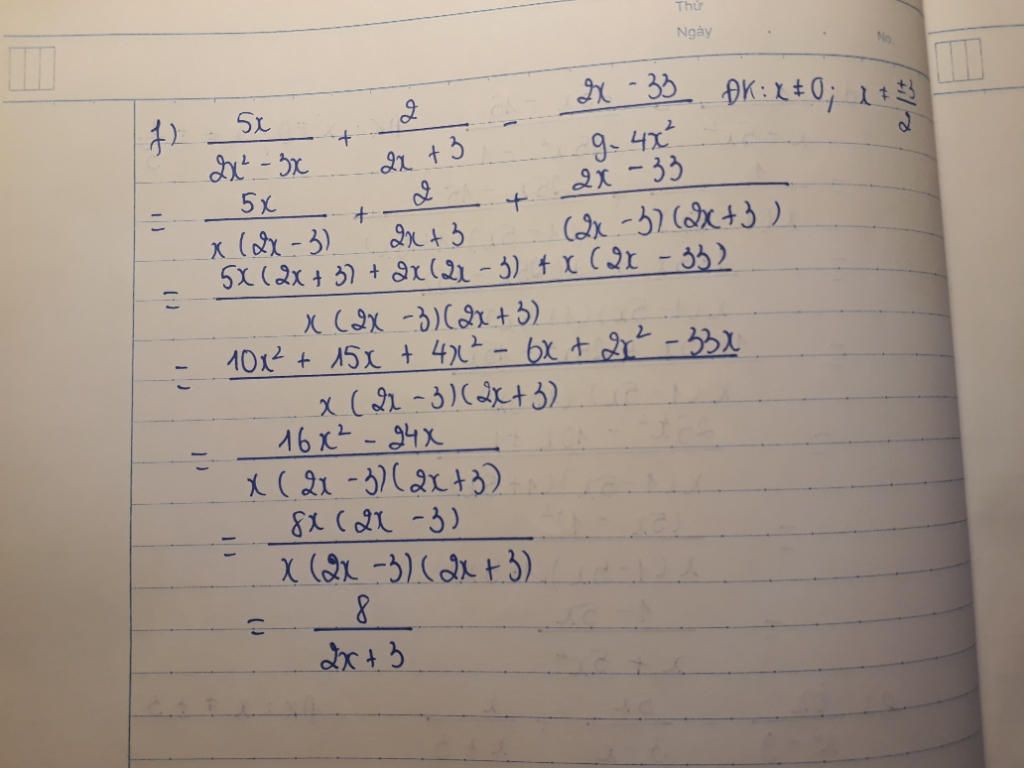 Thứ
Ngày
No.
f) \frac{5x}{2x² - 3x} + \frac{2}{2x + 3} - \frac{2x - 33}{9 - 4x²} ĐK: x ≠ 0; x ≠ \frac{±3}{2}
= \frac{5x}{x(2x - 3)} + \frac{2}{2x + 3} + \frac{2x - 33}{(2x - 3)(2x + 3)}
= \frac{5x(2x + 3) + 2x(2x - 3) + x(2x - 33)}{x(2x - 3)(2x + 3)}
= \frac{10x² + 15x + 4x² - 6x + 2x² - 33x}{x(2x - 3)(2x + 3)}
= \frac{16x² - 24x}{x(2x - 3)(2x + 3)}
= \frac{8x(2x - 3)}{x(2x - 3)(2x + 3)}
= \frac{8}{2x + 3}